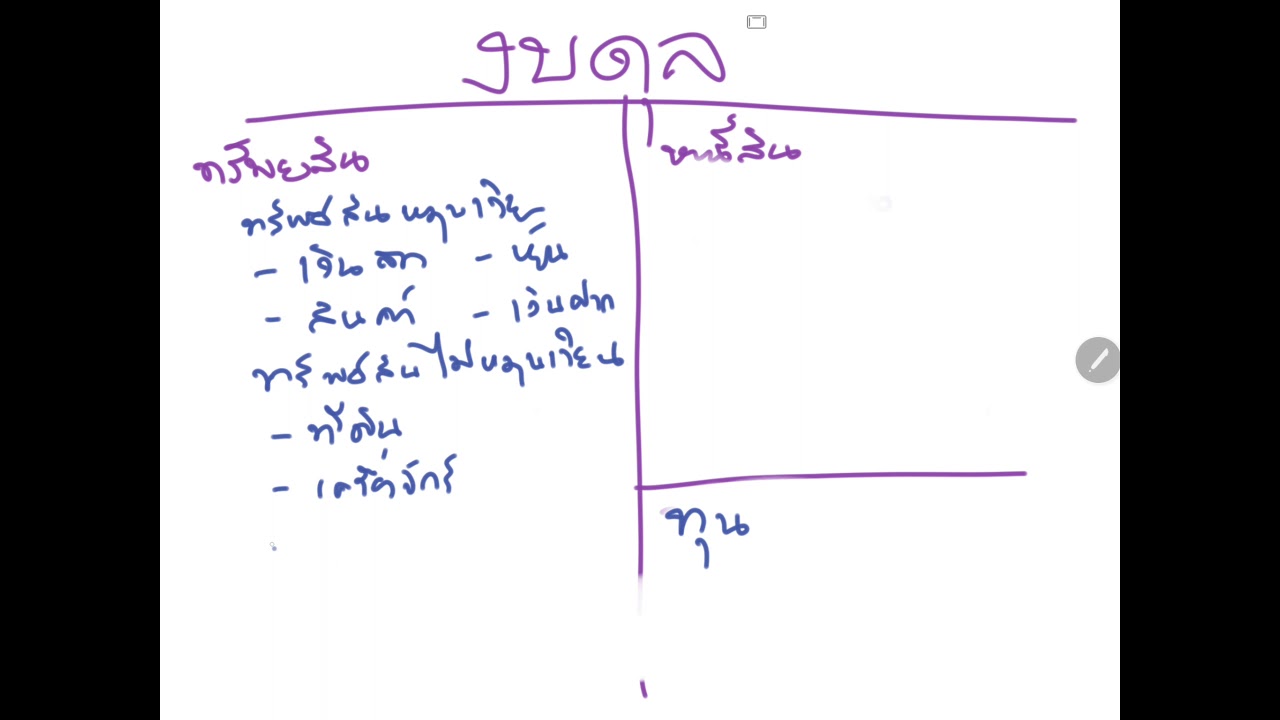 งบดุล
ทรัพย์สิน
หนี้สิน
ทรัพย์สินหมุนเวียน
- เงินสด - หุ้น
- สินค้า - เงินฝาก
ทรัพย์สินไม่หมุนเวียน
- ที่ดิน
- เครื่องจักร
ทุน